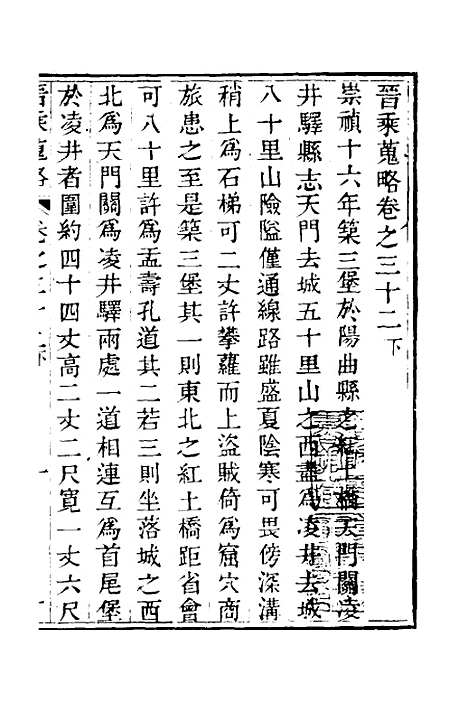 晉乘蒐略卷之三十二下
崇禎十六年築三堡於陽曲縣之紅土橋天門關凌
井驛縣志天門去城五十里山之西盡為凌井去城
八十里山險隘僅通線路雖盛夏陰寒可畏傍深溝
稍上為石梯可二丈許攀蘿而上盜賊倚為窟穴商
旅患之至是築三堡其一則東北之紅土橋距省會
可八十里許為孟壽孔道其二若三則坐落城之西
北為天門關為凌井驛兩處一道相連互為首尾堡
於凌井者圍約四十四丈高二丈二尺寬一丈六尺
晉乘蒐略 卷之三十二下 一